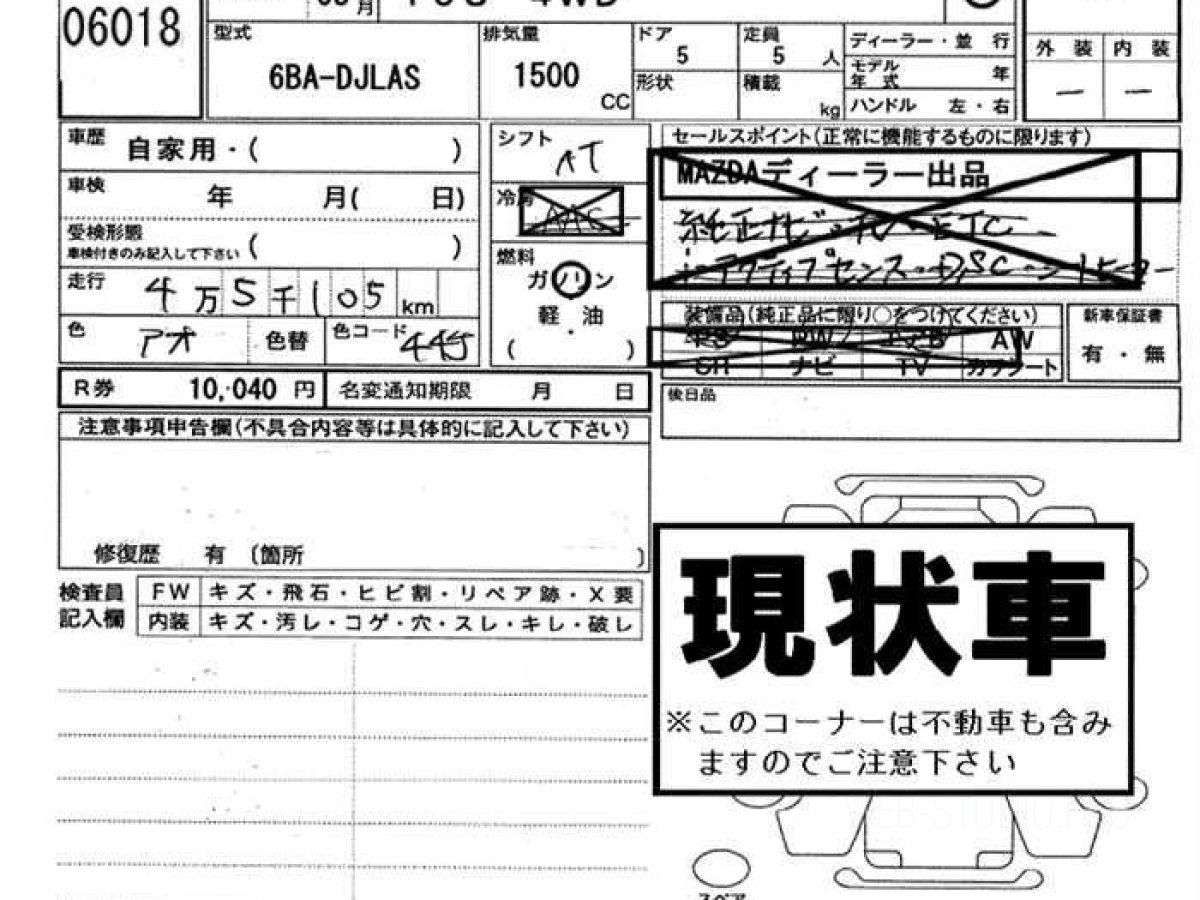 06018
月
4WD
型式
6BA-DJLAS
排気量
1500
CC
ドア
5
定員
5 人
形状
積載
kg
ディーラー・並 行
モデル
年 式 年
ハンドル 左・右
外 装 内 装
— —
車歴
自家用・( )
車検
年 月( 日)
受検形態
車検付きのみ記入して下さい ( )
走行
4万5千105 km
色
アオ
色替
色コード
44J
シフト
AT
冷房
AAC
燃料
ガソリン
軽・油
( )
セールスポイント(正常に機能するものに限ります)
MAZDAディーラー出品
純正ナビ・TV・ETC
i-アクティブセンス・DSC・シートヒーター
装備品(純正品に限り○をつけてください)
PS PW エアB AW
SH ナビ TV カワシート
新車保証書
有・無
R券 10,040 円
名変通知期限 月 日
後日品
注意事項申告欄(不具合内容等は具体的に記入して下さい)
修復歴 有 (箇所 )
検査員
記入欄
FW キズ・飛石・ヒビ割・リペア跡・X要
内装 キズ・汚レ・コゲ・穴・スレ・キレ・破レ
現状車
※このコーナーは不動車も含み
ますのでご注意下さい
スペア